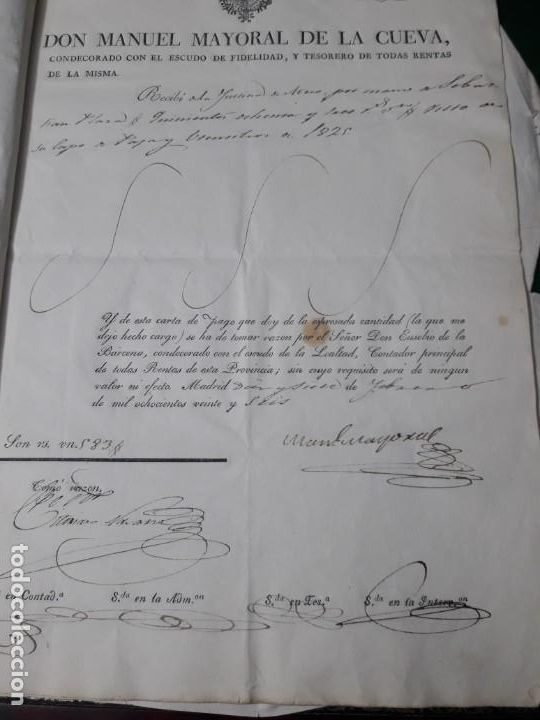 DON MANUEL MAYORAL DE LA CUEVA,
CONDECORADO CON EL ESCUDO DE FIDELIDAD, Y TESORERO DE TODAS RENTAS
DE LA MISMA.
Recibí de la Justicia de por mano de Sebas
tian Quinientos ochenta y tres r.s
de Paja y Utensilios de 1825
Y de esta carta de pago que doy de la espresada cantidad (la que me
dejo hecho cargo) se ha de tomar razon por el Señor Don Eusebio de la
Bárcena, condecorado con el escudo de la Lealtad, Contador principal
de todas Rentas de esta Provincia; sin cuyo requisito será de ningun
valor ni efecto. Madrid diez y siete de Febrero
de mil ochocientos veinte y seis
Son rs. vn. 583
Manl Mayoral
Tomó razon.
en Contad.ª
S.da en la Adm.on
S.da en Tes.ª
S.da en la Interv.on
todocoleccion